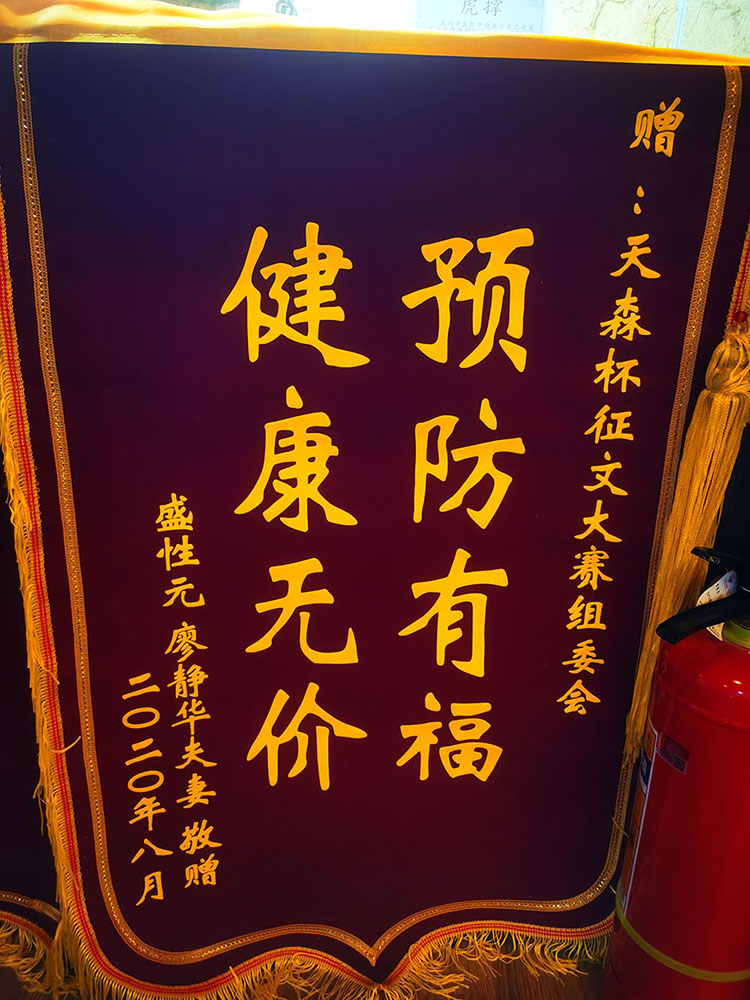 虎撑
赠：天森杯征文大赛组委会
预防有福
健康无价
盛性元 廖静华夫妻 敬赠
二〇二〇年八月